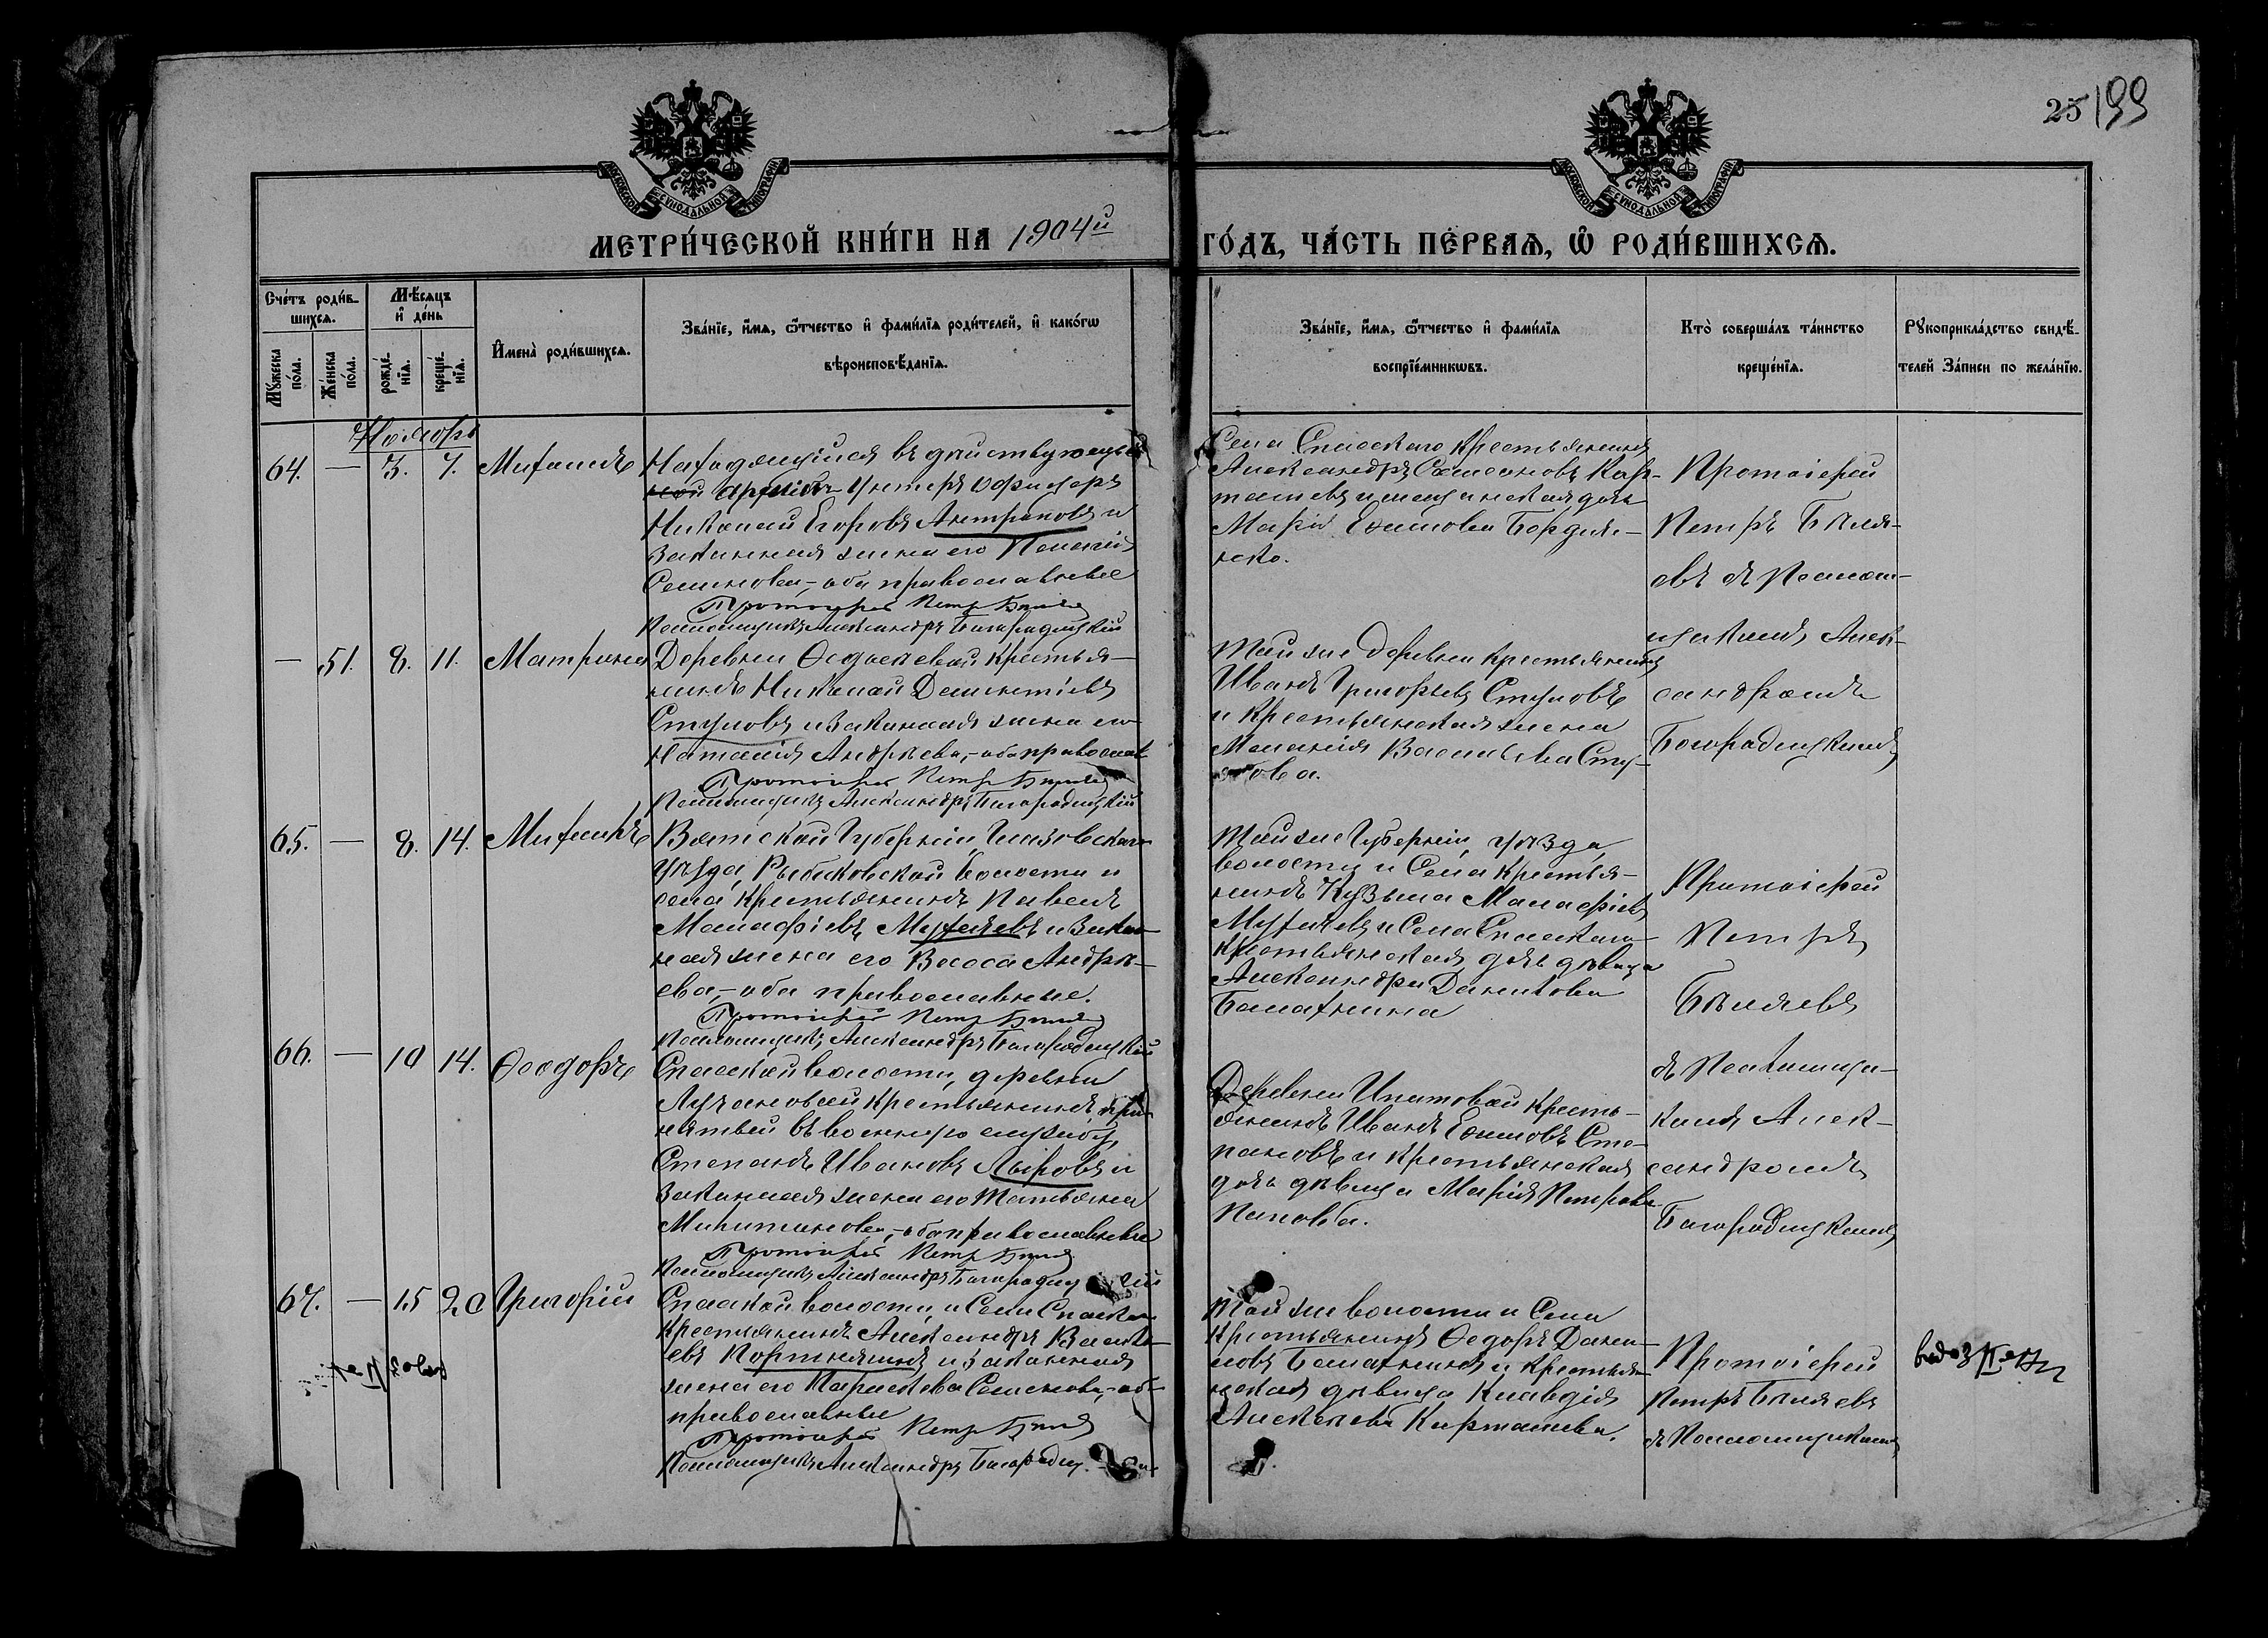 25 199
МОСКОВСКОЙ СУНОДАЛЬНОЙ ТИПОГРАФІИ
МОСКОВСКОЙ СУНОДАЛЬНОЙ ТИПОГРАФІИ
МЕТРИ́ЧЕСКОЙ КНИ́ГИ НА 1904й
ГО́ДЪ, ЧА́СТЬ ПЕ́РВАѦ, Ѡ РОДИ́ВШИХСѦ.
Сче́тъ роди́в-
шихсѧ.
Мѣ́сѧцъ
и де́нь
Мꙋ́жеска
по́ла.
Же́нска
по́ла.
рожде́-
нїѧ.
креще́-
нїѧ.
Имена̀ роди́вшихсѧ.
Зва́нїе, и́мѧ, ѻ́тчество и фами́лїѧ роди́телей, и како́гѡ
вѣроисповѣ́данїѧ.
Зва́нїе, и́мѧ, ѻ́тчество и фами́лїѧ
воспрїе́мникѡвъ.
Кто̀ соверша́лъ та́инство
креще́нїѧ.
Рꙋкоприкла́дство свидѣ́-
телей За́писи по жела́нїю.
Ноябрь
64. — 3. 7. Михаилъ
Находящійся въ дѣйствующей
арміи Унтеръ офицеръ
Николай Егоровъ Антроповъ и
законная жена его Пелагія
Семенова, – оба православные
Протоіерей Петръ Бѣляевъ
Псаломщикъ Александръ Богородицкій
Села Спасскаго Крестьянинъ
Александръ Семеновъ Кар-
ташевъ и мещанская дочь
Марія Ефимова Бордин-
ско.
Протоіерей
Петръ Бѣля-
евъ съ Псалом-
щикомъ Алек-
сандромъ
Богородицкимъ
— 51. 8. 11. Матрона
Деревни Федосѣевой Крестья-
нинъ Николай Дементіевъ
Стуловъ и законная жена его
Наталія Андреева, – оба православ
Протоіерей Петръ Бѣляевъ
Псаломщикъ Александръ Богородицкій
Той же деревни Крестьянинъ
Иванъ Григорьевъ Стуловъ
и Крестьянская жена
Меланія Васильева Сту-
лова.
65. — 8. 14. Михаилъ
Вятской Губерніи Глазовскаго
уѣзда, Рыбаковской волости и
села Крестьянинъ Павелъ
Малафіевъ Мухлаевъ и закон-
ная жена его Васса Андре-
ева, – оба православные.
Протоіерей Петръ Бѣляевъ
Псаломщикъ Александръ Богородицкій
Той же Губерніи, уѣзда,
волости и Села Крестья-
нинъ Кузьма Малафіевъ
Мухлаевъ и Села Спасскаго
Крестьянская дочь дѣвица
Александра Данилова
Балахнина
Протоіерей
Петръ
Бѣляевъ
съ Псаломщи-
комъ Алек-
сандромъ
Богородицкимъ
66. — 10 14. Ѳеодоръ
Спасской волости, деревни
Лучановой Крестьянинъ при-
нятый въ военную службу,
Степанъ Ивановъ Лыровъ и
законная жена его Татьяна
Милитинова, – оба православные
Протоіерей Петръ Бѣляевъ
Псаломщикъ Александръ Богородицкій
Деревни Ипатовой Кресть-
янинъ Иванъ Ефимовъ Сте-
пановъ и Крестьянская
дочь дѣвица Марія Петрова
Попова.
67. — 15 20 Григорій
Спасской волости и Села Спасскаго
Крестьянинъ Александръ Василь-
евъ Портнягинъ и законная
жена его Параскева Семенова, – оба
православные
Протоіерей Петръ Бѣляевъ
Псаломщикъ Александръ Богородиц
Той же волости и Села
Крестьянинъ Ѳедоръ Дани-
ловъ Балахнинъ и Крестьян-
ская дѣвица Клавдія
Алексѣева Карташева.
Протоіерей
Петръ Бѣляевъ
съ Псаломщикомъ